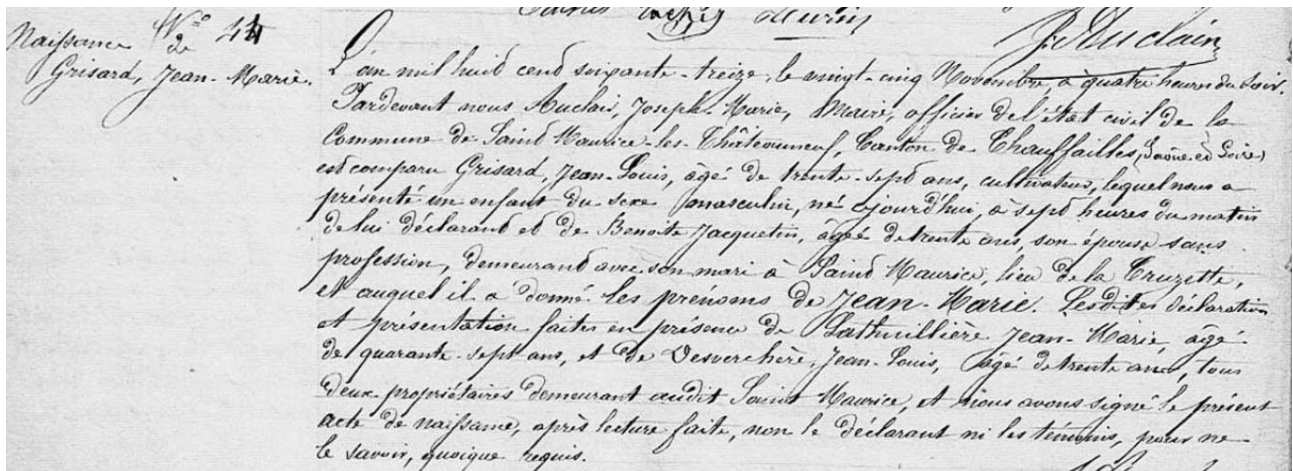 Naissance N° 44
de
Grisard, Jean-Marie.
J. Auclair
L'an mil huit cent soixante-treize, le vingt-cinq Novembre, à quatre heures du soir.
Pardevant nous Auclair, Joseph-Marie, Maire, officier de l'état civil de la
Commune de Saint Maurice-les-Châteauneuf, Canton de Chauffailles, (Saône et Loire)
est comparu Grisard, Jean-Louis, âgé de trente-sept ans, cultivateur, lequel nous a
présenté un enfant du sexe masculin, né aujourd'hui, à sept heures du matin
de lui déclarant et de Benoite Jacquetin, âgée de trente ans, son épouse sans
profession, demeurant avec son mari à Saint Maurice, lieu de la Cruzette,
et auquel il a donné les prénoms de Jean-Marie. Lesdites déclaration
et présentation faites en présence de Lathuillière Jean-Marie, âgé
de quarante-sept ans, et de Desverchère, Jean-Louis, âgé de trente ans, tous
deux propriétaires demeurant audit Saint Maurice, et nous avons signé le présent
acte de naissance, après lecture faite, non le déclarant ni les témoins, pour ne
le savoir, quoique requis.